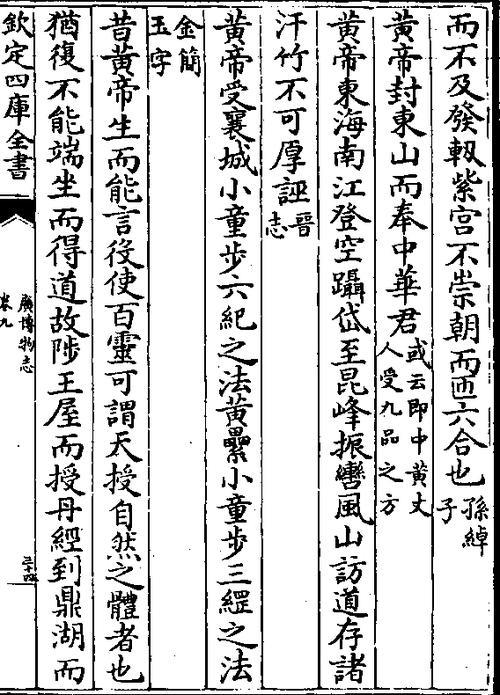 而不及發軔紫宫不崇朝而匝六合也孫綽子
黄帝封東山而奉中華君或云即中黄丈人受九品之方
黄帝東海南江登空躡岱至昆峰振轡風山訪道存諸
汗竹不可厚誣晉志
黄帝受襄城小童步六紀之法黄纍小童步三綱之法
金簡玉字
昔黄帝生而能言役使百靈可謂天授自然之體者也
猶復不能端坐而得道故陟王屋而授丹經到鼎湖而
欽定四庫全書
廣博物志
卷九
三十四